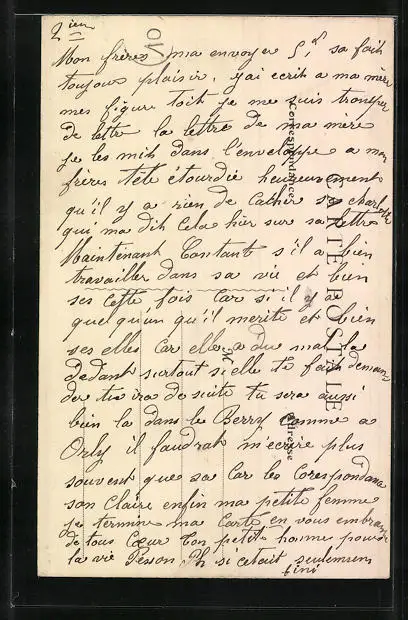 2iem
Mon frères ma envoyer 5f sa fait
toujous plaisir. jai ecrit a ma mère
mes figure toit je me suis tromper
de lettre la lettre de ma mère
je les mit dans l'enveloppe a mon
frères tête étourdie heureusement
qu'il y a rien de cacher sa charlotte
qui ma dit cela hier sur sa lettre
Maintenant Constant s'il a bien
travailler dans sa vie et bien
ses cette fois car si il y a
quelqu'un qu'il merite et bien
ses elles car elle a du mal la
dedant surtout si elle te fait deman
der tu ira de suite tu sera aussi
bien la dans le Berry comme a
Orly il faudrat m'ecrire plus
souvent que sa car les corespondance
son claire enfin ma petite femme
je termine ma carte en vous embrasse
de tous cœur ton petit homme pour
la vie Pesson Ph si cetait seulement
fini
CARTE POSTALE
Correspondance
Adresse